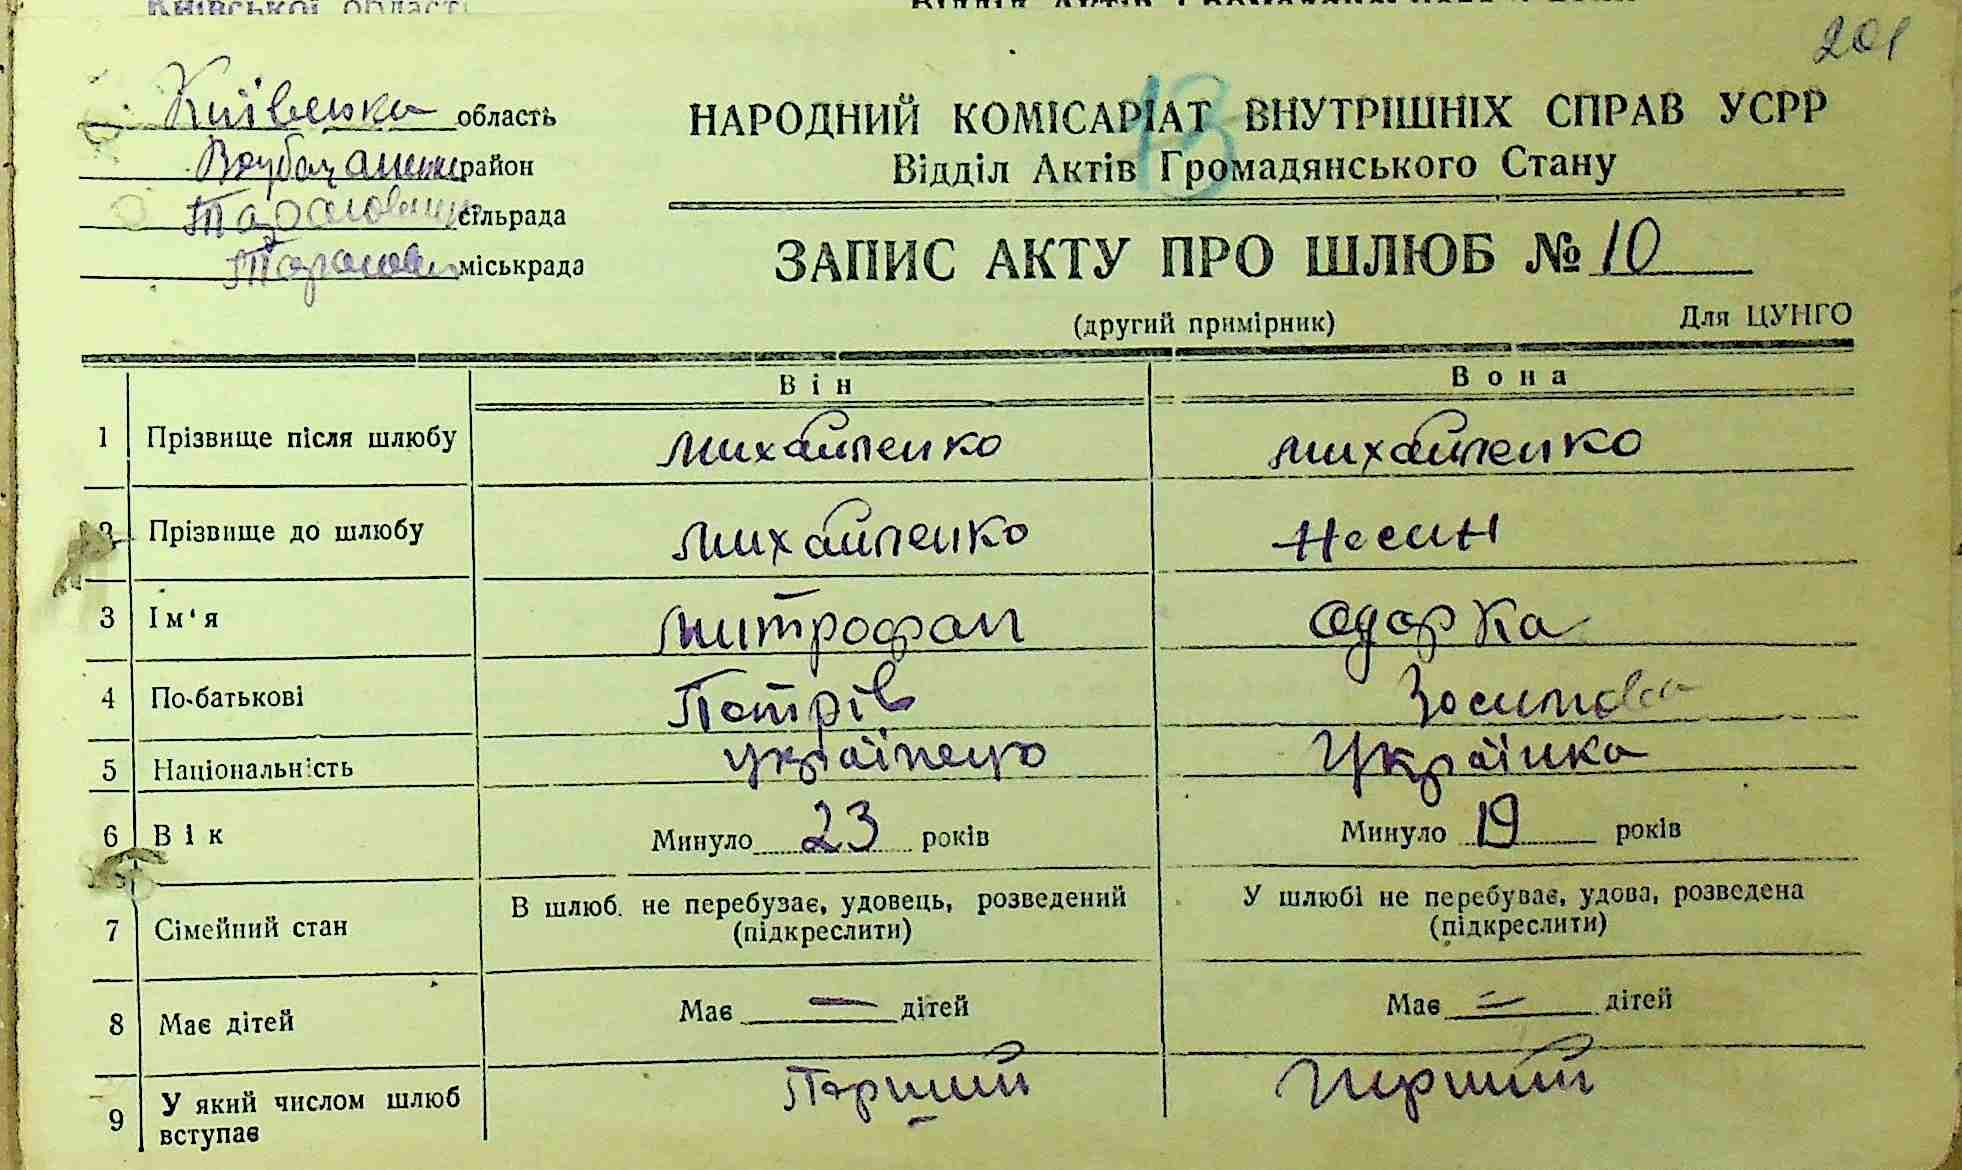 Київської області
201
Київська область
район
сільрада
міськрада
13
НАРОДНИЙ КОМІСАРІАТ ВНУТРІШНІХ СПРАВ УСРР
Відділ Актів Громадянського Стану
ЗАПИС АКТУ ПРО ШЛЮБ № 10
(другий примірник)
Для ЦУНГО
Він
Вона
1 Прізвище після шлюбу Михайленко Михайленко
2 Прізвище до шлюбу Михайленко Несин
3 Ім'я Митрофан Одарка
4 По-батькові Петрів Зосимова
5 Національність українець Українка
6 Вік Минуло 23 років Минуло 19 років
7 Сімейний стан В шлюб. не перебуває, удовець, розведений (підкреслити) У шлюбі не перебуває, удова, розведена (підкреслити)
8 Має дітей Має — дітей Має — дітей
9 У який числом шлюб вступає Перший Перший